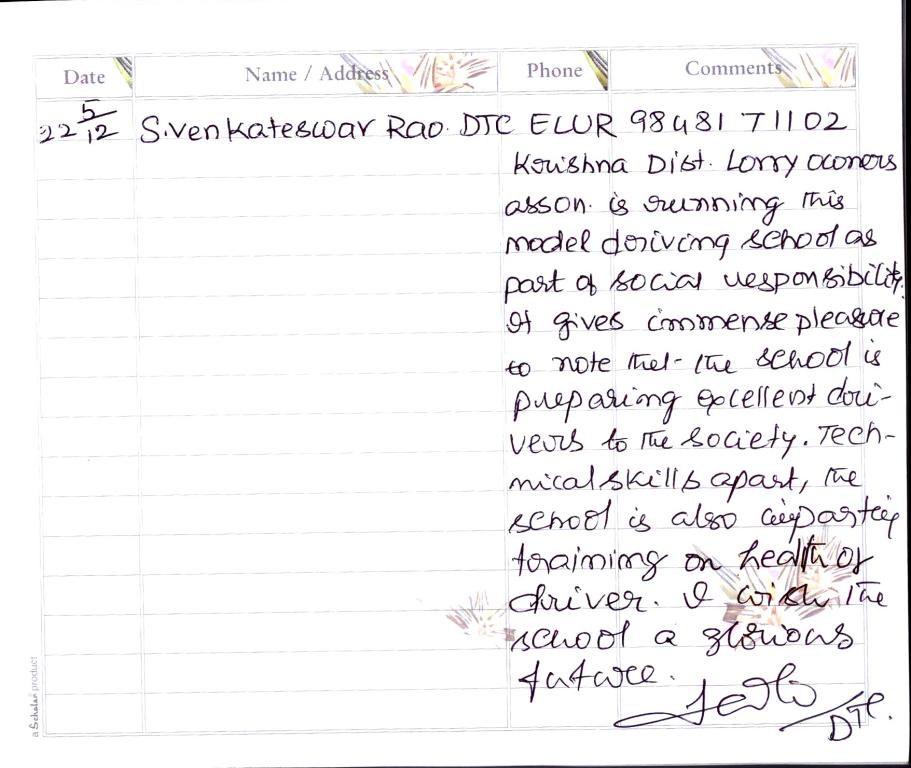 Date Name / Address Phone Comments
22 5/12 S.Venkateswar Rao. DTC ELUR 98481 71102
Krishna Dist. Lorry owners
asson. is running this
model driving school as
part of social responsibility.
It gives immense pleasure
to note that the school is
preparing excellent dri-
vers to the society. Tech-
nical skills apart, the
school is also imparting
training on health of
driver. I wish the
school a glorious
future.
DTC.
a Scholar product